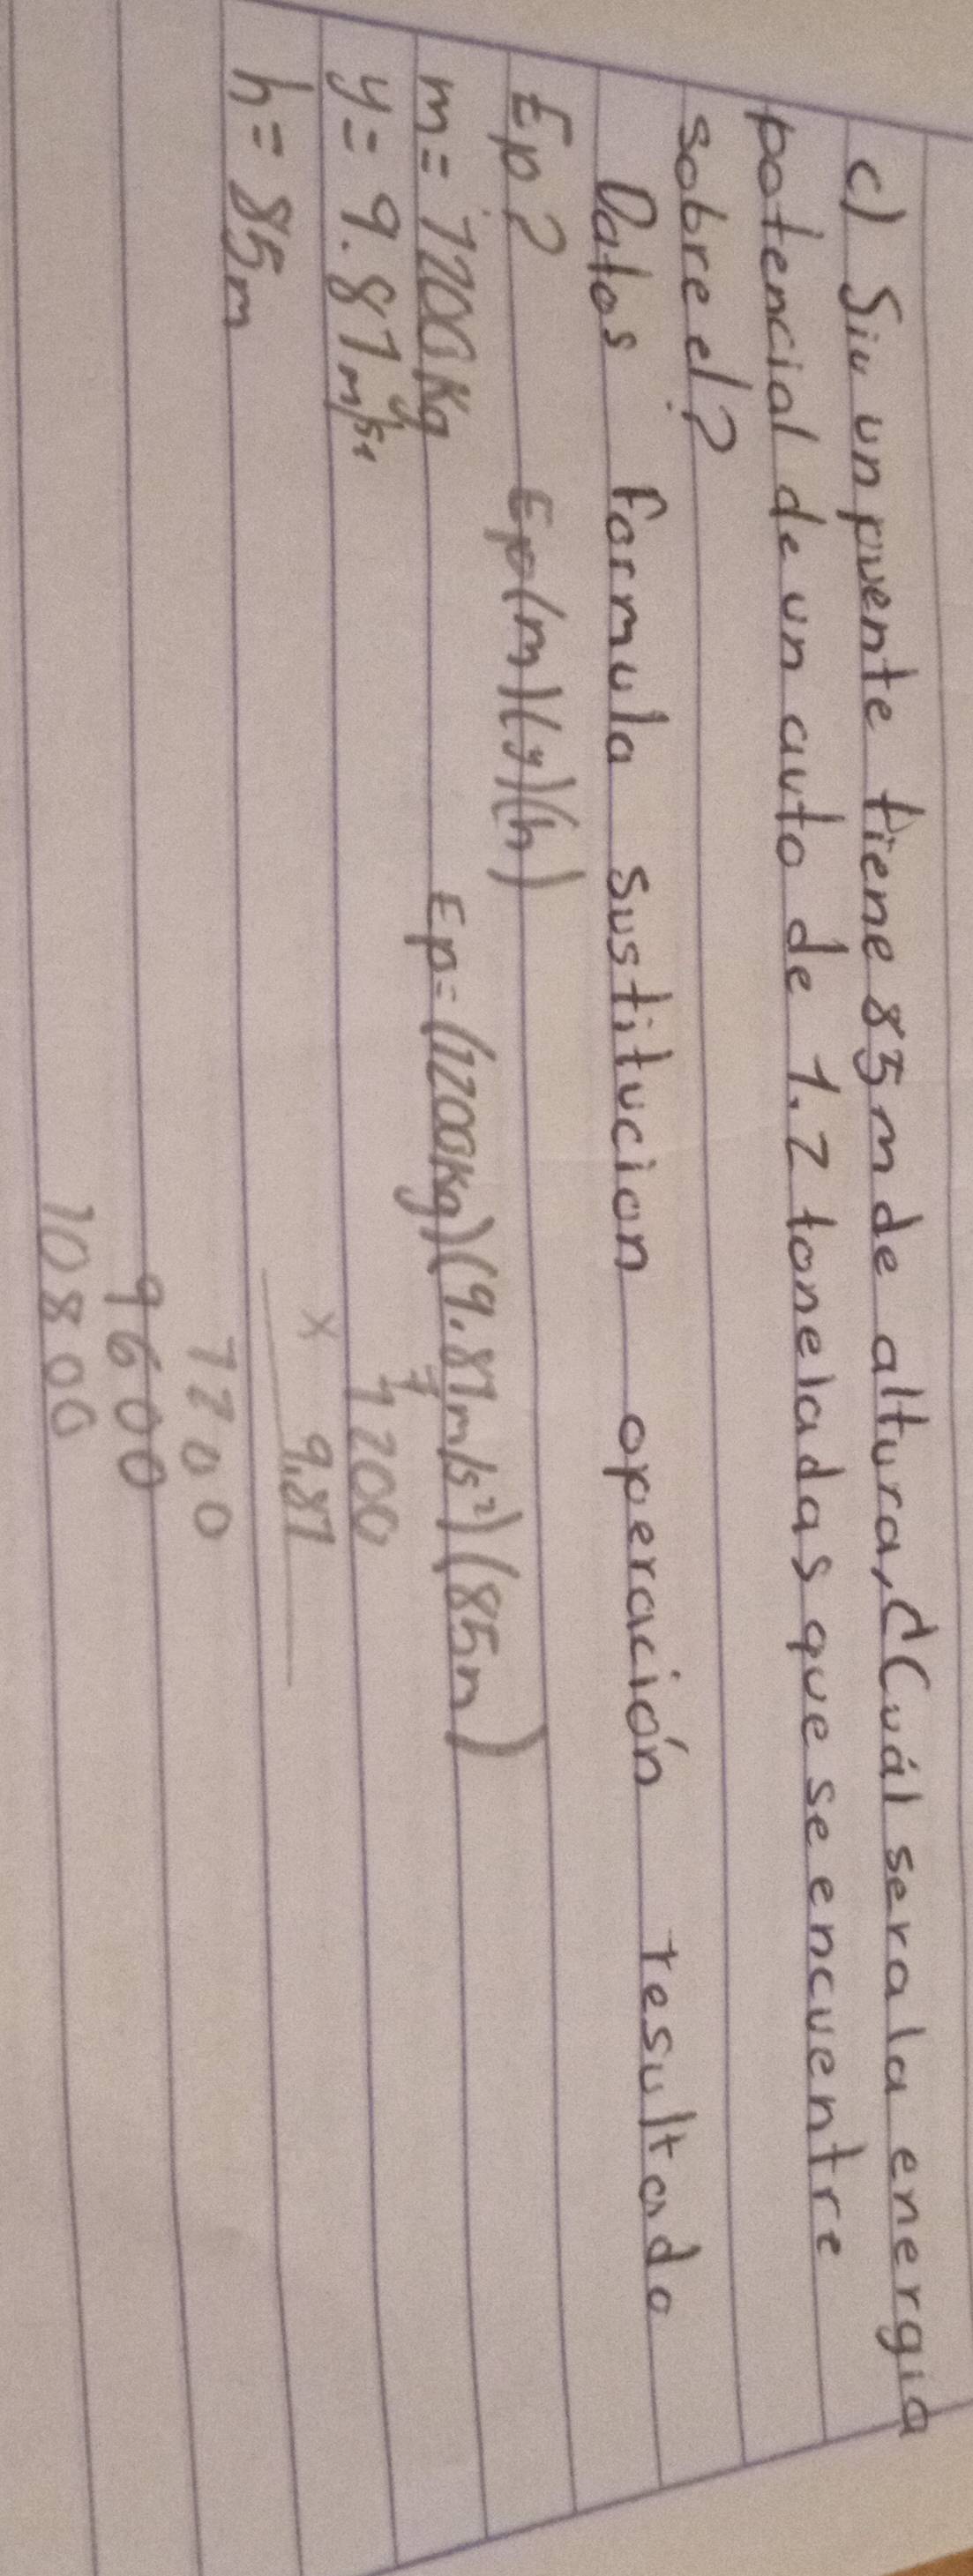 c) Siu un puente tiene 85m de altura, ¿Cuál sera la energia
potencial de un auto de 1.2 toneladas que se encuentre
sobre el?
Datos formula sustitucion operación resultado
Ep? Ep(m)(y)(h)
m= 1200Kg Ep= (1200Kg)(9.81m/s²)(85m)
y= 9.81 m/s² 1200
h= 85m x 9.81
1200
9600
10800